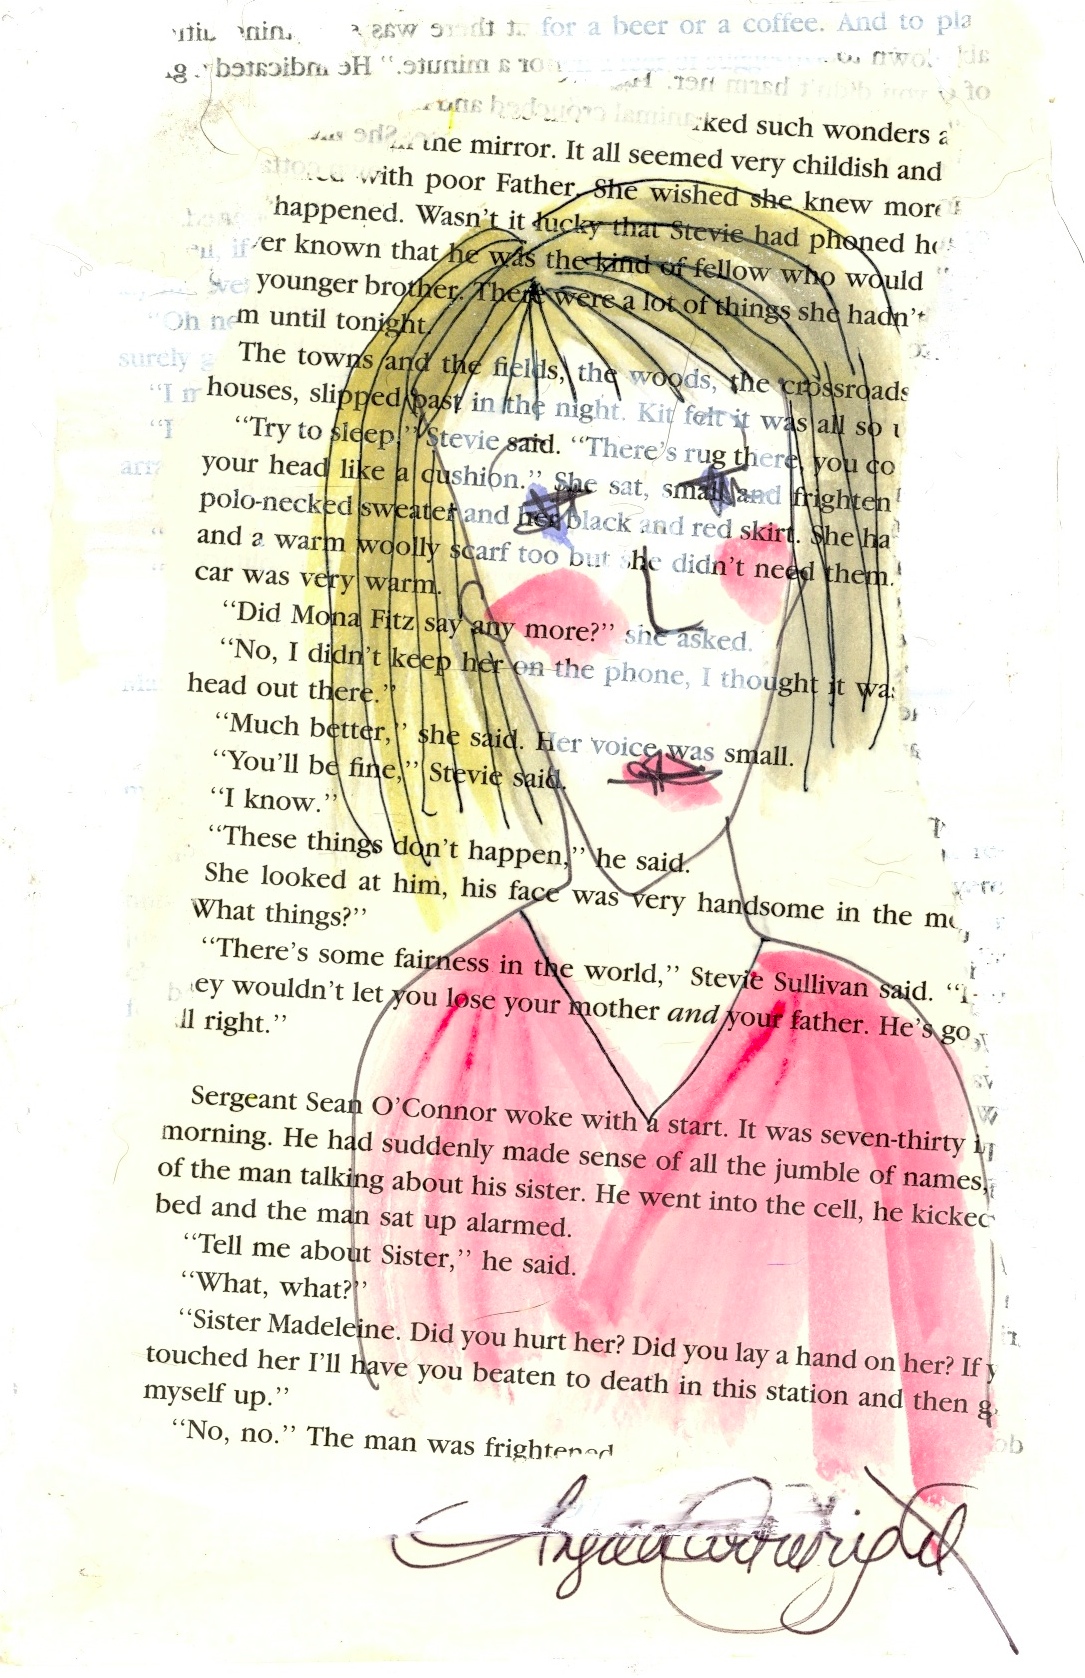 for a beer or a coffee. And to pla
for a minute." He indicated
didn't harm her.
animal crouched and
ked such wonders a
the mirror. It all seemed very childish and
with poor Father. She wished she knew more
happened. Wasn't it lucky that Stevie had phoned
er known that he was the kind of fellow who would
younger brother. There were a lot of things she hadn't
m until tonight.
The towns and the fields, the woods, the crossroads
houses, slipped past in the night. Kit felt it was all so u
"Try to sleep," Stevie said. "There's rug there, you co
your head like a cushion." She sat, small and frighten
polo-necked sweater and her black and red skirt. She ha
and a warm woolly scarf too but she didn't need them.
car was very warm.
"Did Mona Fitz say any more?" she asked.
"No, I didn't keep her on the phone, I thought it was
head out there."
"Much better," she said. Her voice was small.
"You'll be fine," Stevie said.
"I know."
"These things don't happen," he said.
She looked at him, his face was very handsome in the mo
What things?"
"There's some fairness in the world," Stevie Sullivan said. "
ey wouldn't let you lose your mother and your father. He's go
ll right."
Sergeant Sean O'Connor woke with a start. It was seven-thirty i
morning. He had suddenly made sense of all the jumble of names,
of the man talking about his sister. He went into the cell, he kicked
bed and the man sat up alarmed.
"Tell me about Sister," he said.
"What, what?"
"Sister Madeleine. Did you hurt her? Did you lay a hand on her? If y
touched her I'll have you beaten to death in this station and then g
myself up."
"No, no." The man was frightened